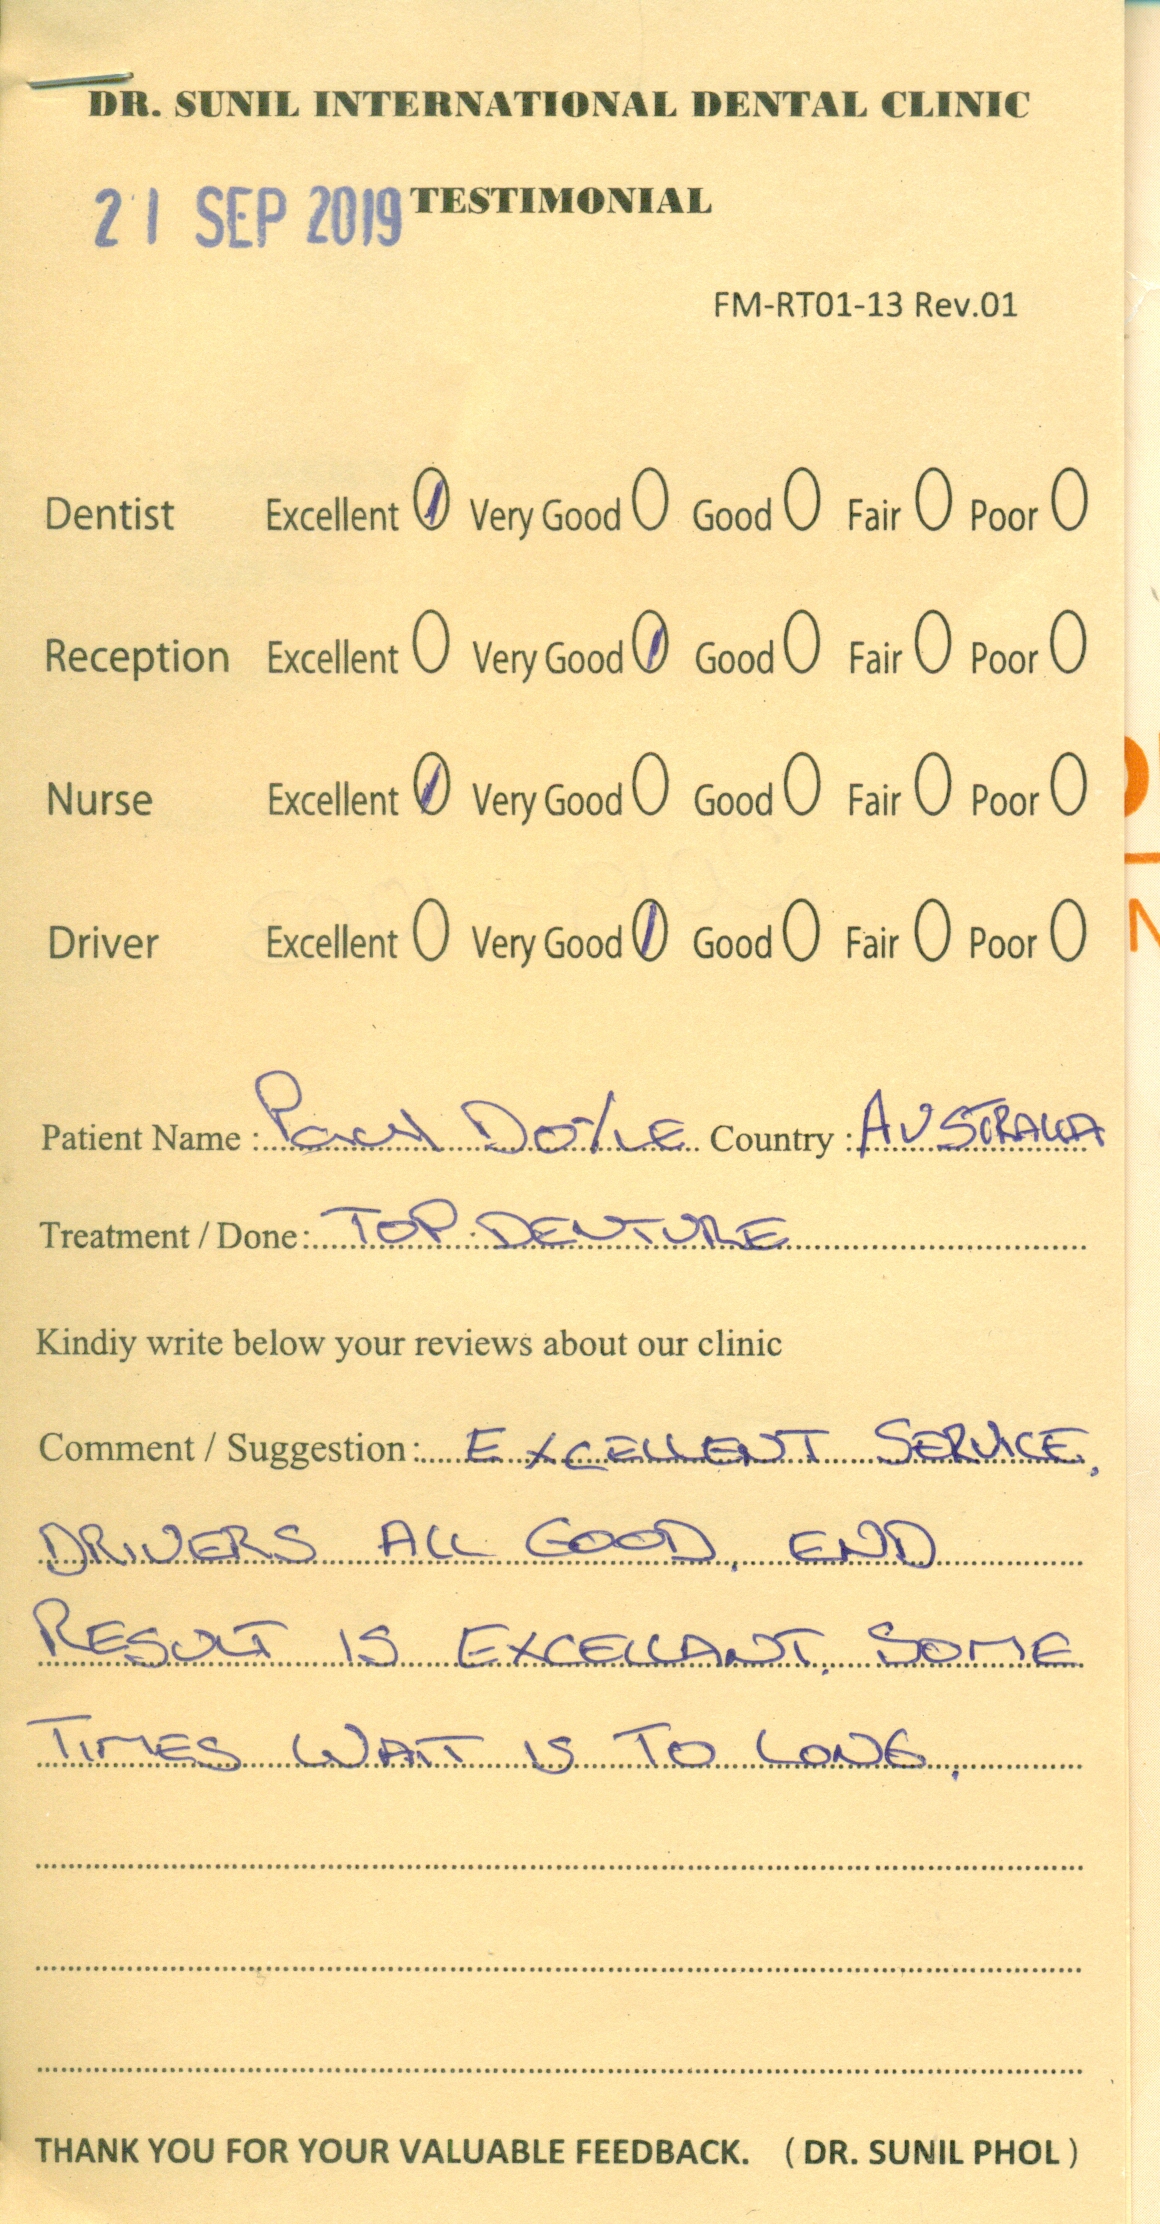 DR. SUNIL INTERNATIONAL DENTAL CLINIC
21 SEP 2019 TESTIMONIAL
FM-RT01-13 Rev.01
Dentist Excellent Very Good Good Fair Poor
Reception Excellent Very Good Good Fair Poor
Nurse Excellent Very Good Good Fair Poor
Driver Excellent Very Good Good Fair Poor
Patient Name : Paul Doyle Country : AUSTRALIA
Treatment / Done: TOP DENTURE
Kindiy write below your reviews about our clinic
Comment / Suggestion: EXCELLENT SERVICE,
DRIVERS ALL GOOD, END
RESULT IS EXCELLANT, SOME
TIMES WAIT IS TO LONG,
THANK YOU FOR YOUR VALUABLE FEEDBACK. ( DR. SUNIL PHOL )